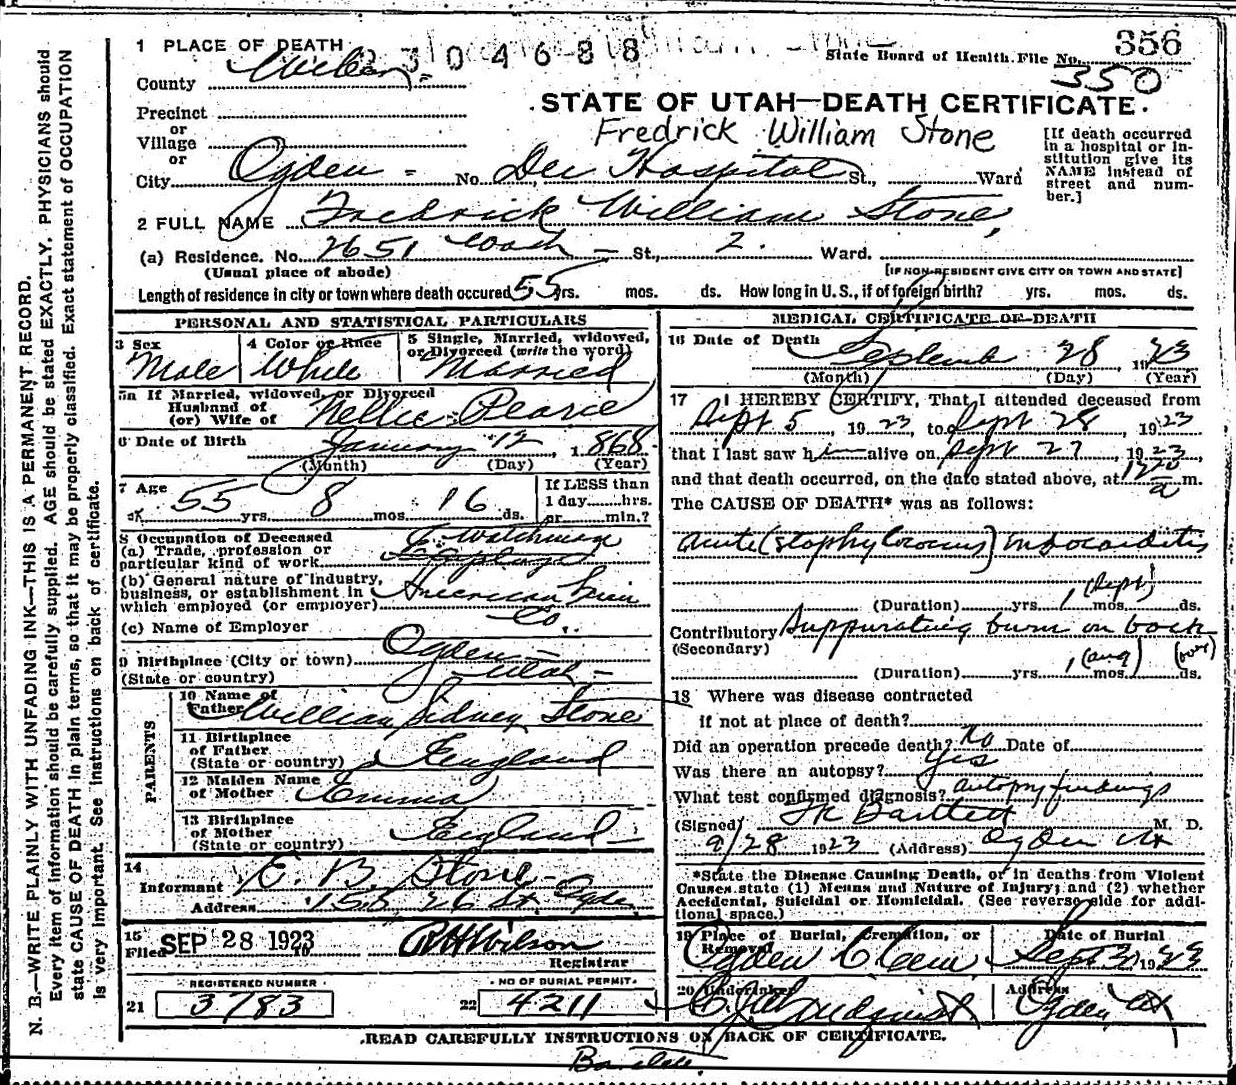 356
2304688
State Board of Health File No. 350
1 PLACE OF DEATH
County Weber
STATE OF UTAH—DEATH CERTIFICATE.
Precinct
or
Village
or
Fredrick William Stone
[If death occurred in a hospital or institution give its NAME instead of street and number.]
City Ogden No. Dee Hospital St., Ward
2 FULL NAME Fredrick William Stone
(a) Residence. No. 2651 St., 2. Ward.
(Usual place of abode) [IF NON-RESIDENT GIVE CITY OR TOWN AND STATE]
Length of residence in city or town where death occured 55 yrs. mos. ds. How long in U. S., if of foreign birth? yrs. mos. ds.
PERSONAL AND STATISTICAL PARTICULARS
3 Sex Male
4 Color or Race White
5 Single, Married, widowed, or Divorced (write the word) Married
5a If Married, widowed, or Divorced
Husband of
(or) Wife of Nellie Pearce
6 Date of Birth January 12, 1868
(Month) (Day) (Year)
7 Age 55 yrs. 8 mos. 16 ds.
If LESS than
1 day hrs.
or min.?
8 Occupation of Deceased
(a) Trade, profession or
particular kind of work Watchman
(b) General nature of industry,
business, or establishment in
which employed (or employer) American Co.
(c) Name of Employer
9 Birthplace (City or town) Ogden
(State or country) Utah
PARENTS
10 Name of Father William Sidney Stone
11 Birthplace
of Father
(State or country) England
12 Maiden Name
of Mother Emma
13 Birthplace
of Mother
(State or country) England
14
Informant E. B. Stone
Address 155 26 St. Ogden
15
Filed SEP 28 1923 Wilson
Registrar
REGISTERED NUMBER
21 3783
NO OF BURIAL PERMIT
22 4211
MEDICAL CERTIFICATE OF DEATH
16 Date of Death September 28 1923
(Month) (Day) (Year)
17 I HEREBY CERTIFY, That I attended deceased from
Sept 5 1923, to Sept 28, 1923
that I last saw him alive on Sept 27, 1923,
and that death occurred, on the date stated above, at 1220 a m.
The CAUSE OF DEATH* was as follows:
acute (staphylococcus) endocarditis
(Duration) yrs. 1 mos. (Sept) ds.
Contributory Suppurating burn on back
(Secondary)
(Duration) yrs. 1 mos. (aug) ds. (over)
18 Where was disease contracted
if not at place of death?
Did an operation precede death? No Date of
Was there an autopsy? Yes
What test confirmed diagnosis? autopsy findings
(Signed) Bartlett M. D.
9/28 1923 (Address) Ogden Ut
*State the Disease Causing Death, or in deaths from Violent
Causes state (1) Means and Nature of Injury; and (2) whether
Accidental, Suicidal or Homicidal. (See reverse side for addi-
tional space.)
19 Place of Burial, Cremation, or Removal Ogden Cem.
Date of Burial Sept 30 1923
20 Undertaker Lindquist
Address Ogden Ut
READ CAREFULLY INSTRUCTIONS ON BACK OF CERTIFICATE.
Bartlett.
N. B.—WRITE PLAINLY WITH UNFADING INK—THIS IS A PERMANENT RECORD.
Every item of information should be carefully supplied. AGE should be stated EXACTLY. PHYSICIANS should
state CAUSE OF DEATH in plain terms, so that it may be properly classified. Exact statement of OCCUPATION
is very important. See instructions on back of certificate.